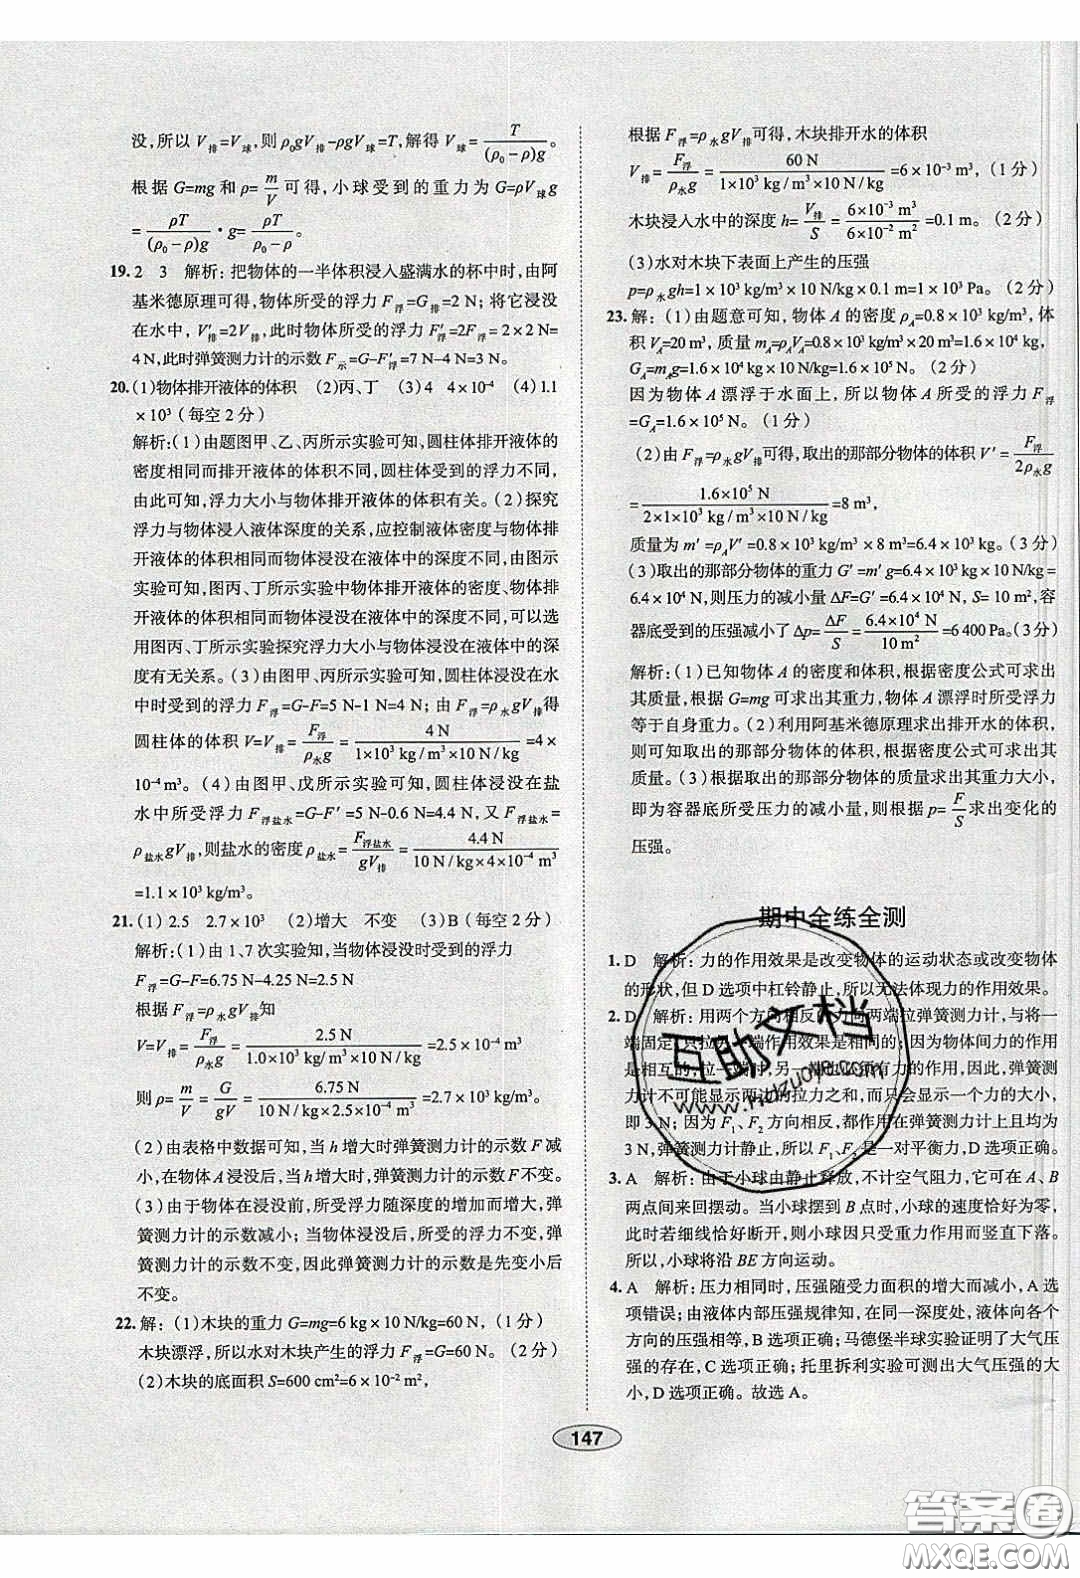 没,所以V排=V球,则ρ₀gV排-ρgV球=T,解得V球=T/((ρ₀-ρ)g)。
根据G=mg和ρ=m/V可得,小球受到的重力为G=ρV球g
=ρT/((ρ₀-ρ)g)·g=ρT/(ρ₀-ρ)。
19. 2 3 解析:把物体的一半体积浸入盛满水的杯中时,由阿
基米德原理可得,物体所受的浮力F浮=G排=2 N;将它浸没
在水中,V′排=2V排,此时物体所受的浮力F′浮=2F浮=2×2 N=
4 N,此时弹簧测力计的示数F示=G-F′浮=7 N-4 N=3 N。
20. (1)物体排开液体的体积 (2)丙、丁 (3)4 4×10⁻⁴ (4)1.1
×10³(每空2分)
解析:(1)由题图甲、乙、丙所示实验可知,圆柱体排开液体的
密度相同而排开液体的体积不同,圆柱体受到的浮力不同,
由此可知,浮力大小与物体排开液体的体积有关。(2)探究
浮力与物体浸入液体深度的关系,应控制液体密度与物体排
开液体的体积相同而物体浸没在液体中的深度不同,由图示
实验可知,图丙、丁所示实验中物体排开液体的密度、物体排
开液体的体积相同而物体浸没在液体中的深度不同,可以选
用图丙、丁所示实验探究浮力大小与物体浸没在液体中的深
度有无关系。(3)由图甲、丙所示实验可知,圆柱体浸没在水
中时受到的浮力F浮=G-F=5 N-1 N=4 N;由F浮=ρ水gV排得
圆柱体的体积V=V排=F浮/(ρ水g)=4 N/(1×10³ kg/m³×10 N/kg)=4×
10⁻⁴ m³。(4)由图甲、戊所示实验可知,圆柱体浸没在盐
水中所受浮力F浮盐水=G-F′=5 N-0.6 N=4.4 N,又F浮盐水=
ρ盐水gV排,则盐水的密度ρ盐水=F浮盐水/(gV排)=4.4 N/(10 N/kg×4×10⁻⁴ m³)
=1.1×10³ kg/m³。
21. (1)2.5 2.7×10³ (2)增大 不变 (3)B(每空2分)
解析:(1)由1、7次实验知,当物体浸没时受到的浮力
F浮=G-F=6.75 N-4.25 N=2.5 N
根据F浮=ρ水gV排知
V=V排=F浮/(ρ水g)=2.5 N/(1.0×10³ kg/m³×10 N/kg)=2.5×10⁻⁴ m³
则ρ=m/V=G/(gV)=6.75 N/(10 N/kg×2.5×10⁻⁴ m³)=2.7×10³ kg/m³。
(2)由表格中数据可知,当h增大时弹簧测力计的示数F减
小,在物体A浸没后,当h增大时,弹簧测力计的示数F不变。
(3)由于物体在浸没前,所受浮力随深度的增加而增大,弹
簧测力计的示数减小;当物体浸没后,所受的浮力不变,弹
簧测力计的示数不变,因此弹簧测力计的示数先变小后不
变。
22. 解:(1)木块的重力G=mg=6 kg×10 N/kg=60 N,(1分)
木块漂浮,所以水对木块产生的浮力F浮=G=60 N。(2分)
(2)木块的底面积S=600 cm²=6×10⁻² m²,
根据F浮=ρ水gV排可得,木块排开水的体积
V排=F浮/(ρ水g)=60 N/(1×10³ kg/m³×10 N/kg)=6×10⁻³ m³,(1分)
木块浸入水中的深度h=V排/S=6×10⁻³ m³/(6×10⁻² m²)=0.1 m。(2分)
(3)水对木块下表面上产生的压强
p=ρ水gh=1×10³ kg/m³×10 N/kg×0.1 m=1×10³ Pa。(2分)
23. 解:(1)由题意可知,物体A的密度ρA=0.8×10³ kg/m³,体
积VA=20 m³,质量mA=ρAVA=0.8×10³ kg/m³×20 m³=1.6×10⁴ kg,
GA=mAg=1.6×10⁴ kg×10 N/kg=1.6×10⁵ N。(2分)
因为物体A漂浮于水面上,所以物体A所受的浮力F浮
=GA=1.6×10⁵ N。(1分)
(2)由F浮=ρ水gV排可得,取出的那部分物体的体积V′=F浮/(2ρ水g)
=1.6×10⁵ N/(2×1×10³ kg/m³×10 N/kg)=8 m³,
质量为m′=ρAV′=0.8×10³ kg/m³×8 m³=6.4×10³ kg。(3分)
(3)取出的那部分物体的重力G′=m′g=6.4×10³ kg×10 N/kg=
6.4×10⁴ N,则压力的减小量ΔF=G′=6.4×10⁴ N,S=10 m²,容
器底受到的压强减小了Δp=ΔF/S=6.4×10⁴ N/10 m²=6 400 Pa。(3分)
解析:(1)已知物体A的密度和体积,根据密度公式可求出
其质量,根据G=mg可求出其重力,物体A漂浮时所受浮力
等于自身重力。(2)利用阿基米德原理求出排开水的体积,
则可知取出的那部分物体的体积,根据密度公式可求出其
质量。(3)根据取出的那部分物体的质量求出其重力大小,
即为容器底所受压力的减小量,则根据p=F/S求出变化的
压强。
期中全练全测
1. D 解析:力的作用效果是改变物体的运动状态或改变物体
的形状,但D选项中杠铃静止,所以无法体现力的作用效果。
2. D 解析:用两个方向相反的力向两端拉弹簧测力计,与将一
端固定,只拉另一端作用效果是相同的;因为物体间力的作用
是相互的,拉一端时,另一端也必须有力的作用,因此,弹簧测
力计不可能显示两边的拉力之和,而只会显示一个力的大小,
即3 N;因为F₁、F₂方向相反,作用在弹簧测力计上且均为
3 N,弹簧测力计静止,所以F₁、F₂是一对平衡力,D选项正确。
3. A 解析:由于小球由静止释放,不计空气阻力,它可在A、B
两点间来回摆动。当小球摆到B点时,小球的速度恰好为零,
此时若细线恰好断开,则小球因只受重力作用而竖直下落。
所以,小球将沿BE方向运动。
4. A 解析:压力相同时,压强随受力面积的增大而减小,A选
项错误;由液体内部压强规律知,在同一深度处,液体向各个
方向的压强相等,B选项正确;马德堡半球实验证明了大气压
强的存在,C选项正确;托里拆利实验可测出大气压强的大
小,D选项正确。故选A。
互助文档
www.Huzuoye.com
147
答案圈
MXQE.COM